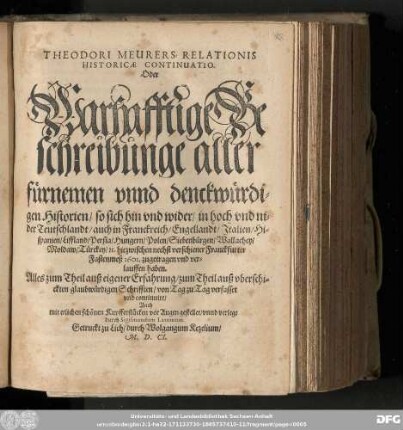 THEODORI MEURERS RELATIONIS
HISTORICÆ CONTINUATIO.
Oder
Warhafftige Be
schreibunge aller
fürnemen vnnd denckwürdi-
gen Historien/ so sich hin vnd wider/ in hoch vnd ni-
der Teutschlandt/ auch in Franckreich/ Engellandt/ Italien/ Hi-
spanien/ Liffland/ Persia/ Hungern/ Polen/ Siebenbürgen/ Wallachey/
Moldaw/ Türckey/ hiezwischen nechst verschiener Franckfurter
Fastenmeß 1601. zugetragen vnd ver-
lauffen haben.
Alles zum Theil auß eigener Erfahrung/ zum Theil auß vberschi-
ckten glaubwürdigen Schrifften/ von Tag zu Tag verfasset
vnd continuirt/
Auch
mit etlichen schönen Kupfferstücken vor Augen gestellet/ vnnd verlegt
durch
Getruckt zu Lich/ durch Wolgangum Kezelium/
M. D. CI.
Universitäts- und Landesbibliothek Sachsen-Anhalt
DFG